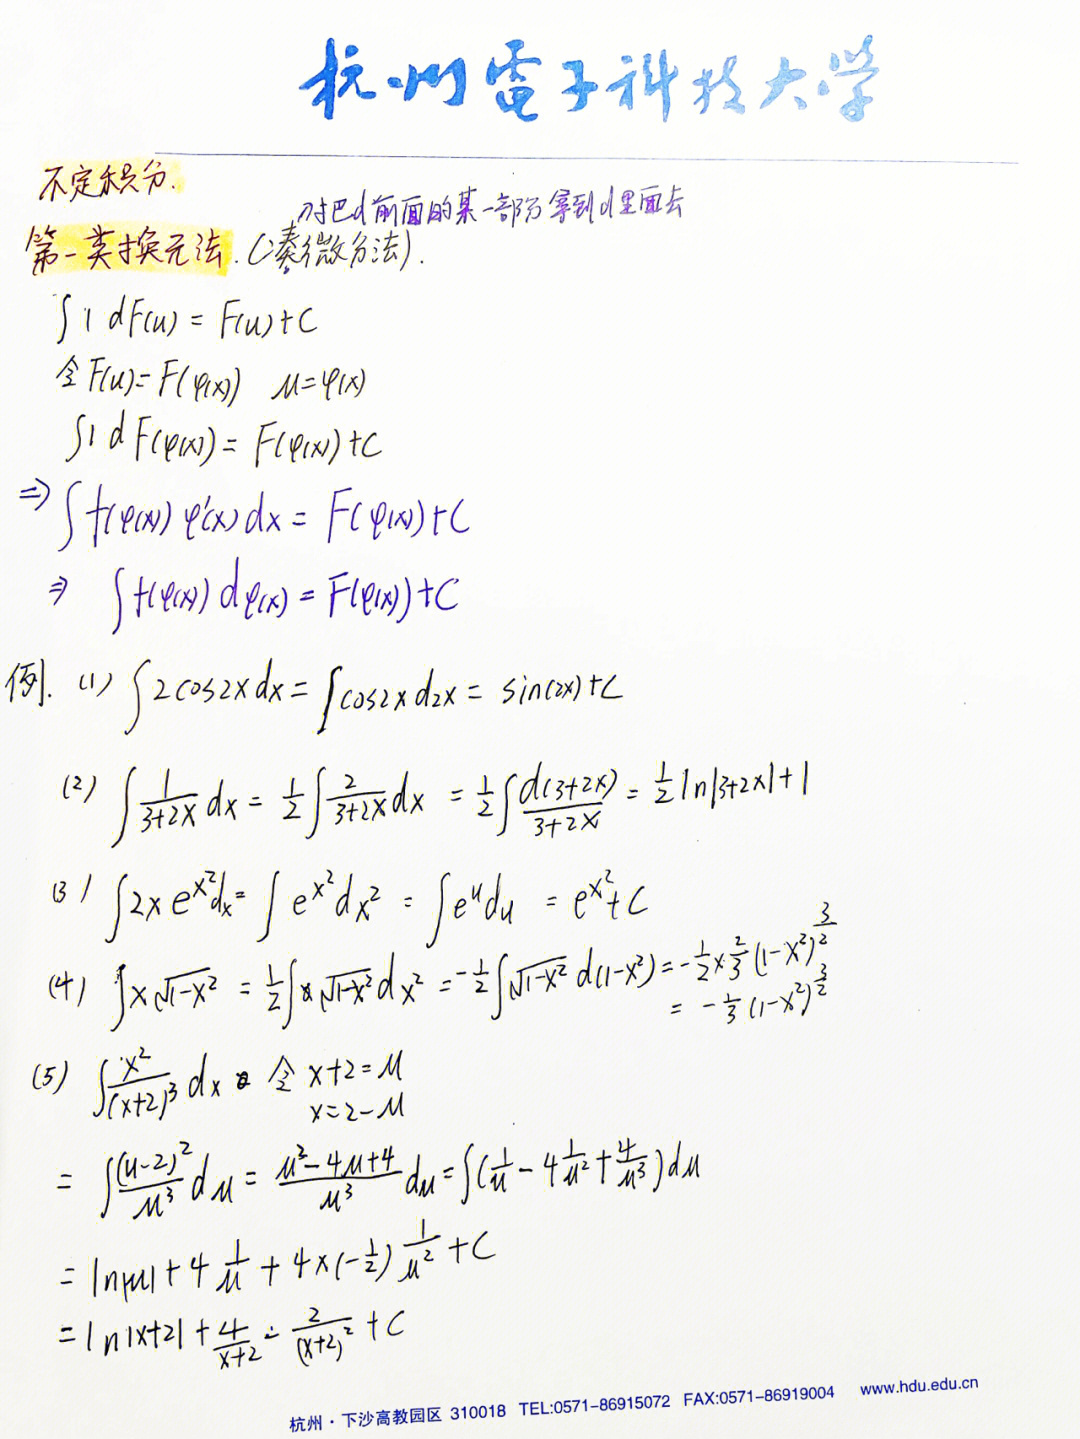 杭州電子科技大学
不定积分.
对把d前面的某一部分拿到d里面去
第一类换元法.(凑微分法).
∫1 dF(u) = F(u)+C
令F(u)=F(φ(x)) u=φ(x)
∫1 dF(φ(x)) = F(φ(x))+C
⇒ ∫f(φ(x)) φ'(x) dx = F(φ(x))+C
⇒ ∫f(φ(x)) dφ(x) = F(φ(x))+C
例. (1) ∫2cos2x dx = ∫cos2x d2x = sin(2x)+C
(2) ∫1/(3+2x) dx = 1/2 ∫2/(3+2x) dx = 1/2 ∫d(3+2x)/(3+2x) = 1/2 ln|3+2x|+1
(3) ∫2x e^x² dx = ∫e^x² dx² = ∫e^u du = e^x²+C
(4) ∫x√(1-x²) = 1/2 ∫√(1-x²) dx² = -1/2 ∫√(1-x²) d(1-x²) = -1/2 × 2/3 (1-x²)^3/2
= -1/3 (1-x²)^3/2
(5) ∫x²/(x+2)³ dx 令 x+2=u
x=2-u
= ∫(u-2)²/u³ du = (u²-4u+4)/u³ du = ∫(1/u - 4 1/u² + 4/u³) du
= ln|u| + 4 1/u + 4×(-1/2) 1/u² + C
= ln|x+2| + 4/(x+2) - 2/(x+2)² + C
杭州·下沙高教园区 310018 TEL:0571-86915072 FAX:0571-86919004 www.hdu.edu.cn